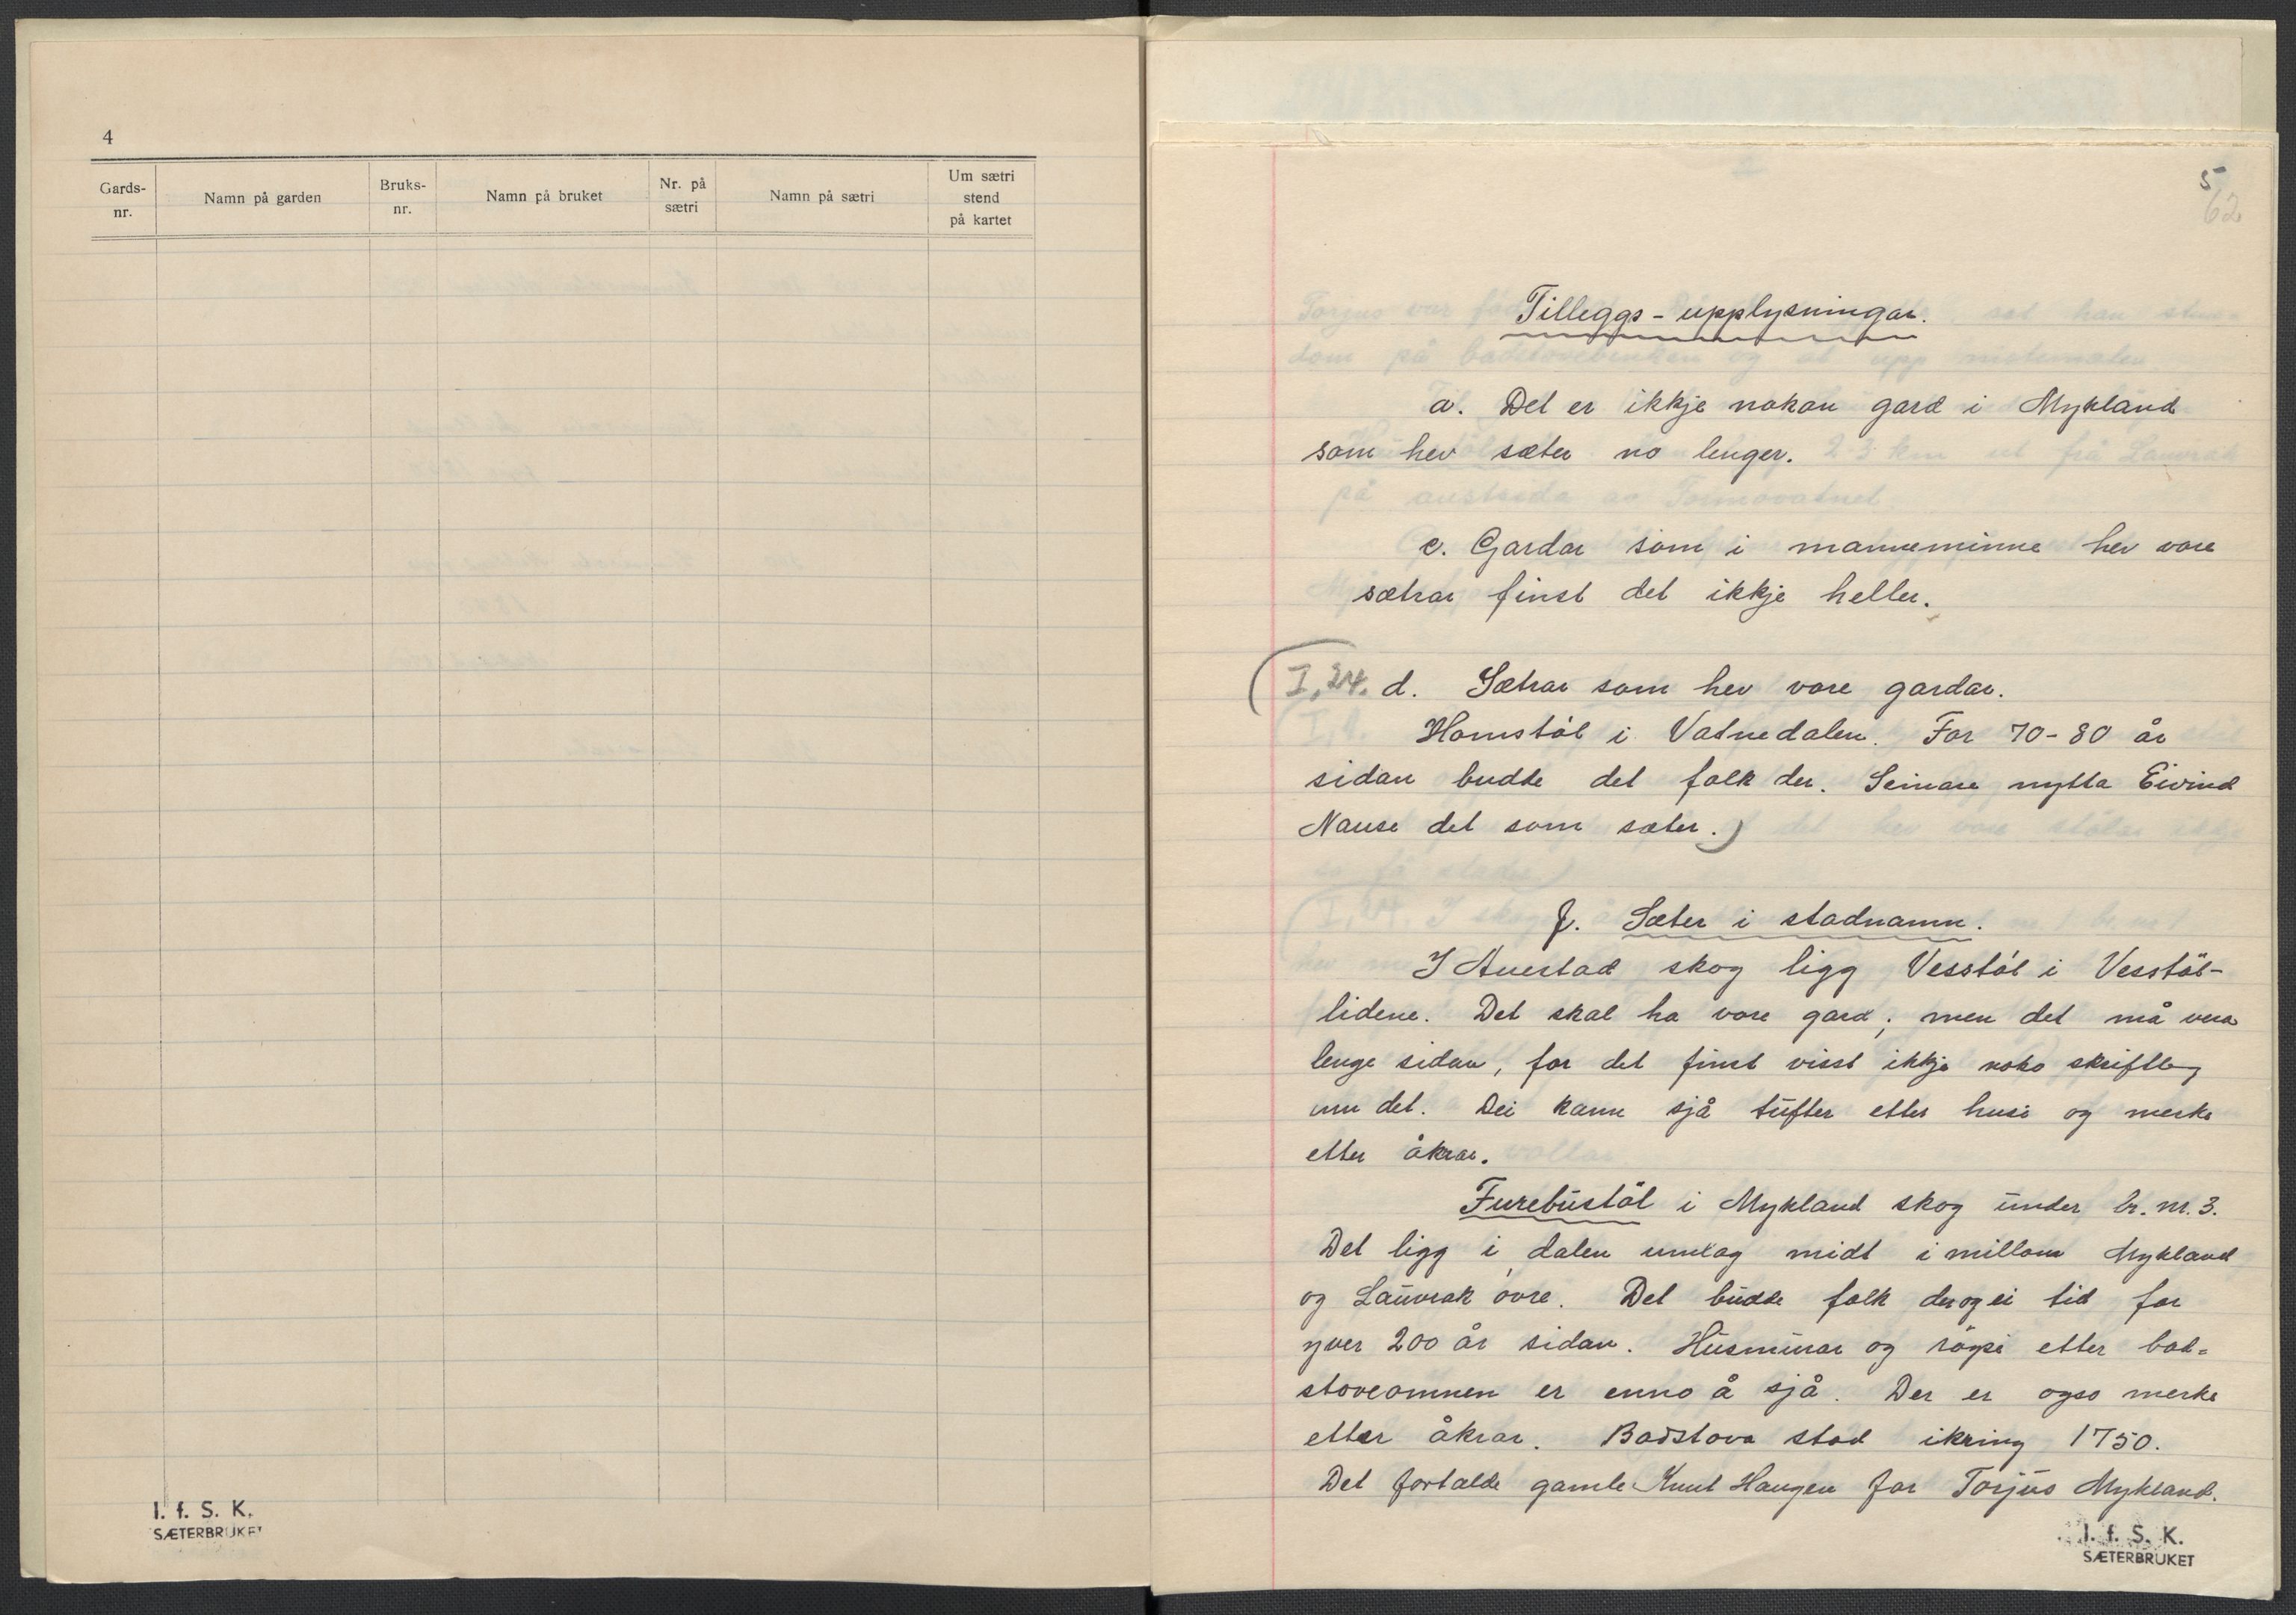 4
Gards-
nr.
Namn på garden
Bruks-
nr.
Namn på bruket
Nr. på
sætri
Namn på sætri
Um sætri
stend
på kartet
I. f. S. K.
SÆTERBRUKET
5
62
Tilleggs-upplysningar.
a. Det er ikkje nokon gard i Mykland
som hev sæter no lenger.
c. Gardar som i manneminne hev vore
sætrar finst det ikkje heller.
(I, 24. d. Sætrar som hev vore gardar.
Homstøl i Vatnedalen. For 70-80 år
sidan budde det folk der. Seinare nytta Eivind
Nause det som sæter.)
f. Sæter i stadnamn.
I Avestad skog ligg Vesstøl i Vesstøl-
lidene. Det skal ha vore gard; men det må vera
lenge sidan, for det finst visst ikkje noko skriftleg
um det. Dei kann sjå tufter etter husi og merke
etter åkrar.
Furebustøl i Mykland skog under br. nr. 3.
Det ligg i dalen umlag midt i millom Mykland
og Lauvrak øvre. Det budde folk der og ei tid for
yver 200 år sidan. Husmurar og røysi etter bad-
stoveomnen er enno å sjå. Der er ogso merke
etter åkrar. Badstova stod ikring 1750.
Det fortalde gamle Knut Haugen for Torjus Mykland.
I. f. S. K.
SÆTERBRUKET